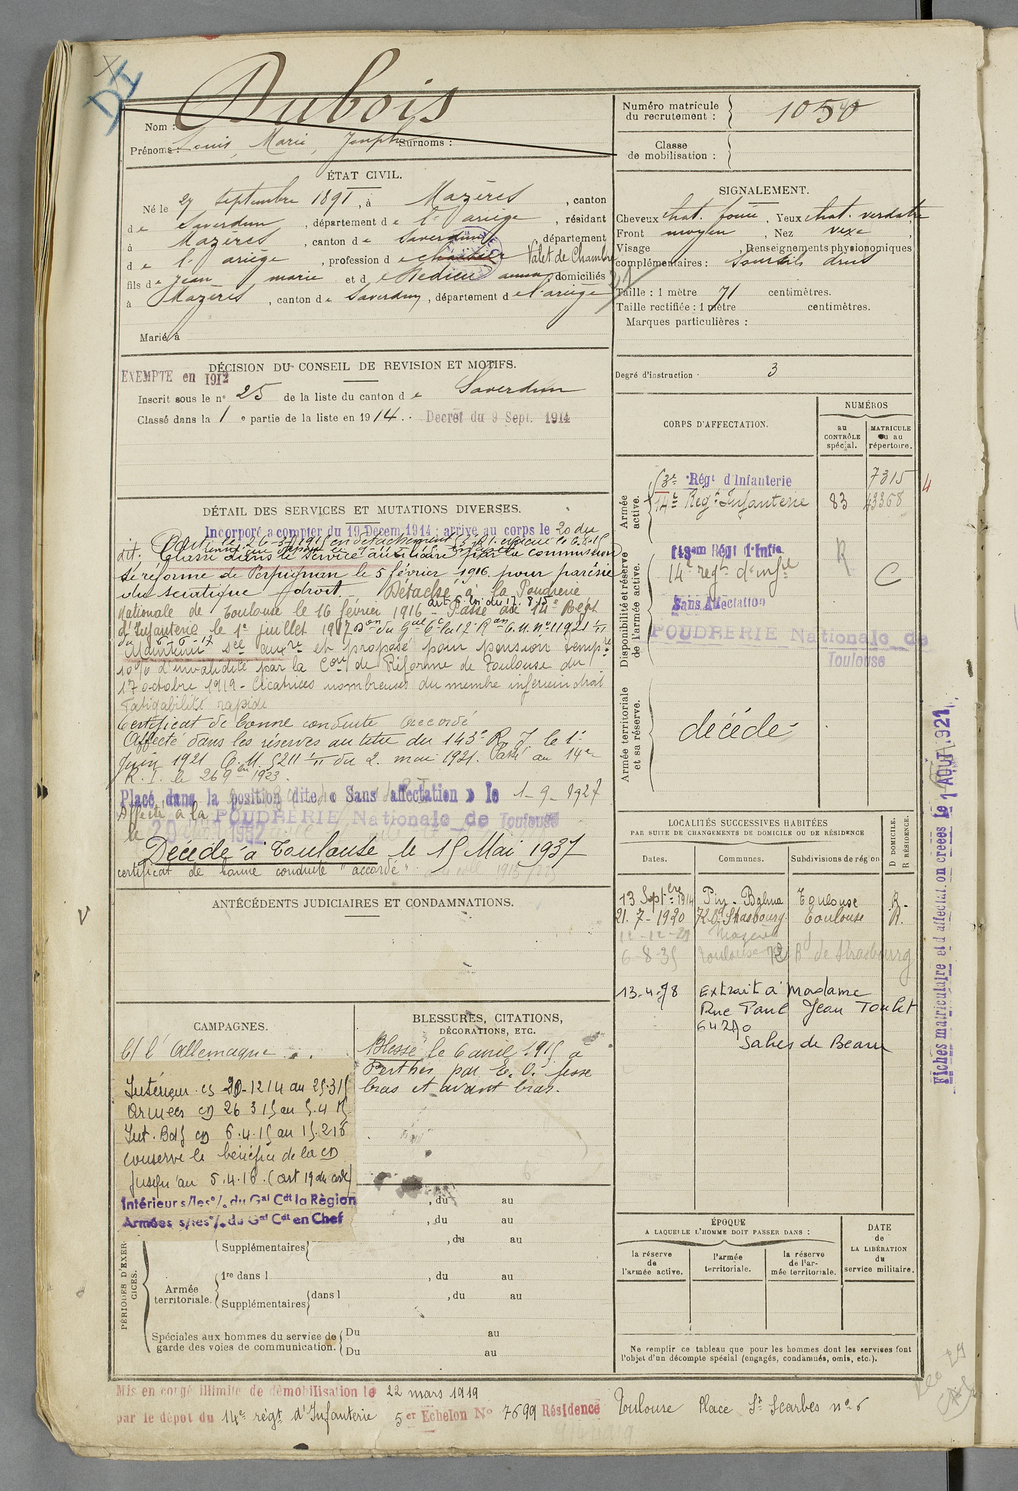 DI
Dubois
Nom :
Prénoms : Louis, Marie, Joseph Surnoms :
Numéro matricule du recrutement : 1050
Classe de mobilisation :
ÉTAT CIVIL.
Né le 27 septembre 1891, à Mazères, canton
de Saverdun, département de l'Ariège, résidant
à Mazères, canton de Saverdun, département
de l'Ariège, profession de Valet de Chambre
fils de Jean marie et de Hedieu anna, domiciliés
à Mazères, canton de Saverdun, département de l'ariège
Marié à
SIGNALEMENT.
Cheveux chat. foncé, Yeux chat. verdatre
Front moyen, Nez vexe
Visage , Renseignements physionomiques
complémentaires : Sourcils drus
Taille : 1 mètre 71 centimètres.
Taille rectifiée : 1 mètre centimètres.
Marques particulières :
Degré d'instruction 3
DÉCISION DU CONSEIL DE REVISION ET MOTIFS.
EXEMPTE en 1912
Inscrit sous le n° 25 de la liste du canton de Saverdun
Classé dans la 1e partie de la liste en 1914. Decret du 9 Sept. 1914
CORPS D'AFFECTATION.
NUMÉROS
au CONTRÔLE spécial.
MATRICULE ou au répertoire.
Armée active.
3e Régt d'Infanterie 7315
14e Régt Infanterie 83 43358
4
Disponibilité et réserve de l'armée active.
143em Régt d'Infie R
14e regt d'infie C
Sans Affectation
POUDRERIE Nationale de
Toulouse
Armée territoriale et sa réserve.
décédé
DÉTAIL DES SERVICES ET MUTATIONS DIVERSES.
Incorporé a compter du 19 Décem. 1914 : arrivé au corps le 20 du
dit.
Classé dans le service auxiliaire commission
de réforme de Perpignan le 5 février 1916 pour parésie
du sciatique droit. Détaché à la Poudrerie
Nationale de Toulouse le 16 février 1916 Passé au 14e Regt
d'Infanterie le 1er juillet 1917
Maintenu sce auxre et proposé pour pension tempre
10% d'invalidité par la Con de Réforme de Toulouse du
17 octobre 1919 - Cicatrices nombreuses du membre inférieur droit
fatigabilité rapide
Certificat de bonne conduite accordé
Affecté dans les réserves au titre du 143e R. I. le 1er
Juin 1921 C. M. 5211 1/11 du 2. mai 1921. Passé au 14e
R. I. le 26 9 1923.
Placé dans la position dite « Sans affectation » le 1-9-1927
Affecté à la POUDRERIE Nationale de Toulouse
le 20 1932
Décédé à Toulouse le 15 Mai 1937
certificat de bonne conduite "accordé"
LOCALITÉS SUCCESSIVES HABITÉES
PAR SUITE DE CHANGEMENTS DE DOMICILE OU DE RÉSIDENCE
Dates. Communes. Subdivisions de région D DOMICILE. R RÉSIDENCE.
13 Septbre 1914 Pin-Balma Toulouse R.
21. 7-1920 Strasbourg Toulouse R.
12-12-29 Mazères
6-8-35 Toulouse Bd de Strasbourg
13.4.78 Extrait à Madame
Rue Paul Jean Toulet
64270
Salies de Bearn
ANTÉCÉDENTS JUDICIAIRES ET CONDAMNATIONS.
V
CAMPAGNES.
C/ l'Allemagne
Intérieur cs 20-12 14 au 25.3 15
Armées cd 26 3 15 au 5.4 15
Int. cd 6.4.15 au 15.2 16
conserve le bénéfice de la cd
jusqu'au 5.4.16. (art 19 du
Intérieur s/les o/. du Gal Cdt la Région
Armées s/les o/. du Gal Cdt en Chef
BLESSURES, CITATIONS,
DÉCORATIONS, ETC.
Blessé le 6 avril 1915 à
Perthes par E. O. fesse
bras et avant bras.
PÉRIODES D'EXERCICES.
, du au
, du au
Supplémentaires , du au
Armée territoriale.
1re dans l , du au
Supplémentaires dans l , du au
Spéciales aux hommes du service de garde des voies de communication.
Du au
Du au
ÉPOQUE
A LAQUELLE L'HOMME DOIT PASSER DANS :
la réserve de l'armée active.
l'armée territoriale.
la réserve de l'armée territoriale.
DATE de LA LIBÉRATION du service militaire.
Ne remplir ce tableau que pour les hommes dont les services font
l'objet d'un décompte spécial (engagés, condamnés, omis, etc.).
Mis en congé illimité de démobilisation le 22 mars 1919
par le dépôt du 14e régt d'Infanterie 5er Echelon N° 7699 Résidence Toulouse Place St Scarbes n° 6
Fiches matriculaire et d'affectation créées le 1 AOUT 1921